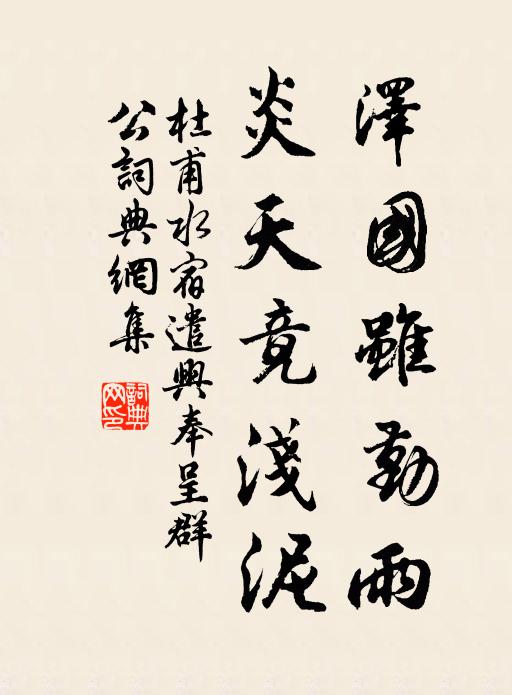 澤國雖勤雨
炎天竟淺泥
杜甫水宿遣興奉呈群
公詞典網集
詞典
网印